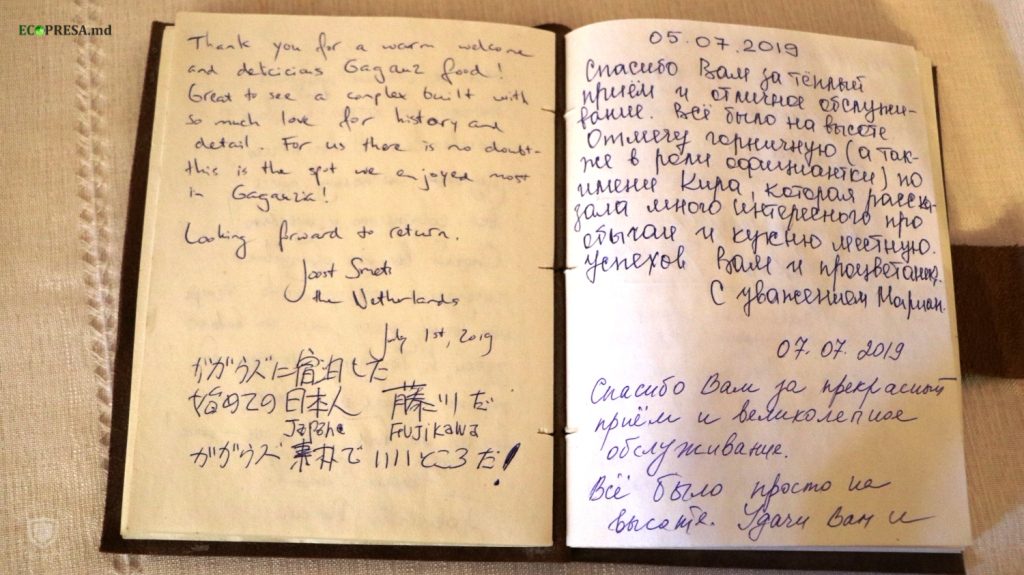 ECOPRESA.md
Thank you for a warm welcome
and delicious Gagauz food!
Great to see a complex built with
so much love for history and
detail. For us there is no doubt-
this is the spot we enjoyed most
in Gagauzia!
Looking forward to return.
Joost Smets
the Netherlands
July 1st, 2019
ガガウズに宿泊した
始めての日本人 藤川だ
Japane Fujikawa
ガガウズ 素朴で いいところだ!
05.07.2019
Спасибо Вам за тёплый
приём и отличное обслужи-
вание. Всё было на высоте
Отмечу горничную (а так-
же в роли официантки) по
имени Кира, которая расска-
зала много интересного про
обычаи и кухню местную.
Успехов Вам и процветания.
С уважением Мариан.
07.07.2019
Спасибо Вам за прекрасный
приём и великолепное
обслуживание.
Всё было просто на
высоте. Удачи Вам и